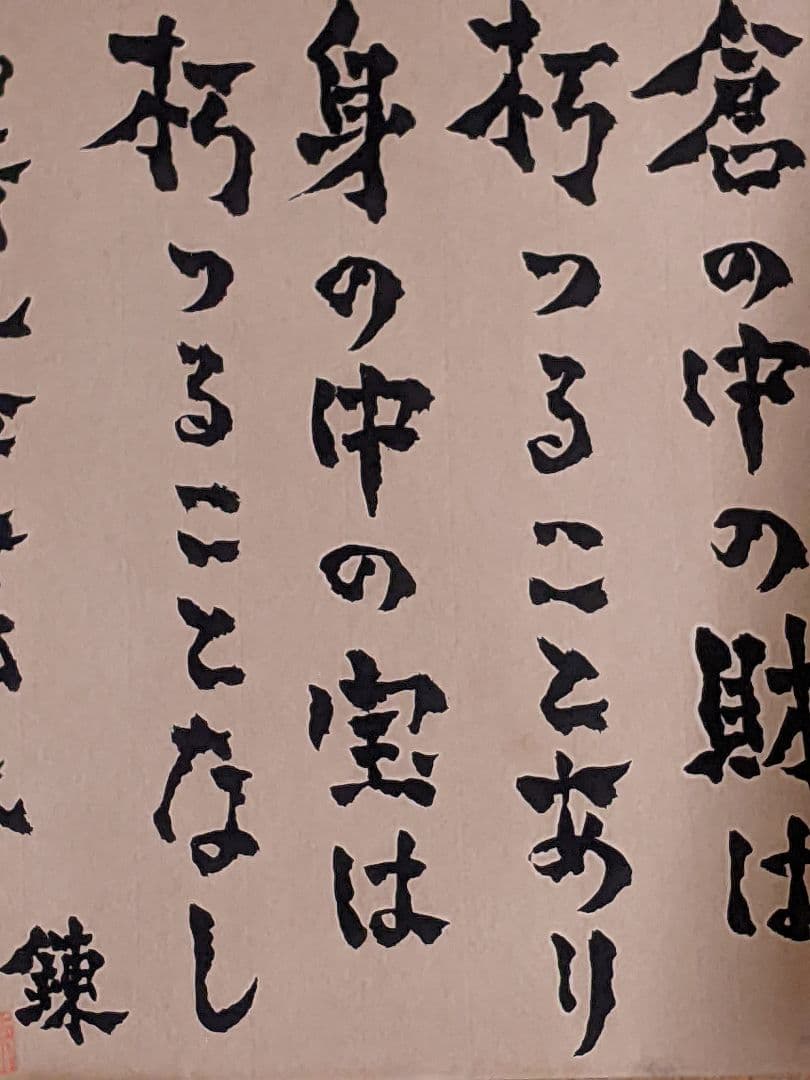 倉の中の財は
朽つることあり
身の中の宝は
朽つることなし
錬